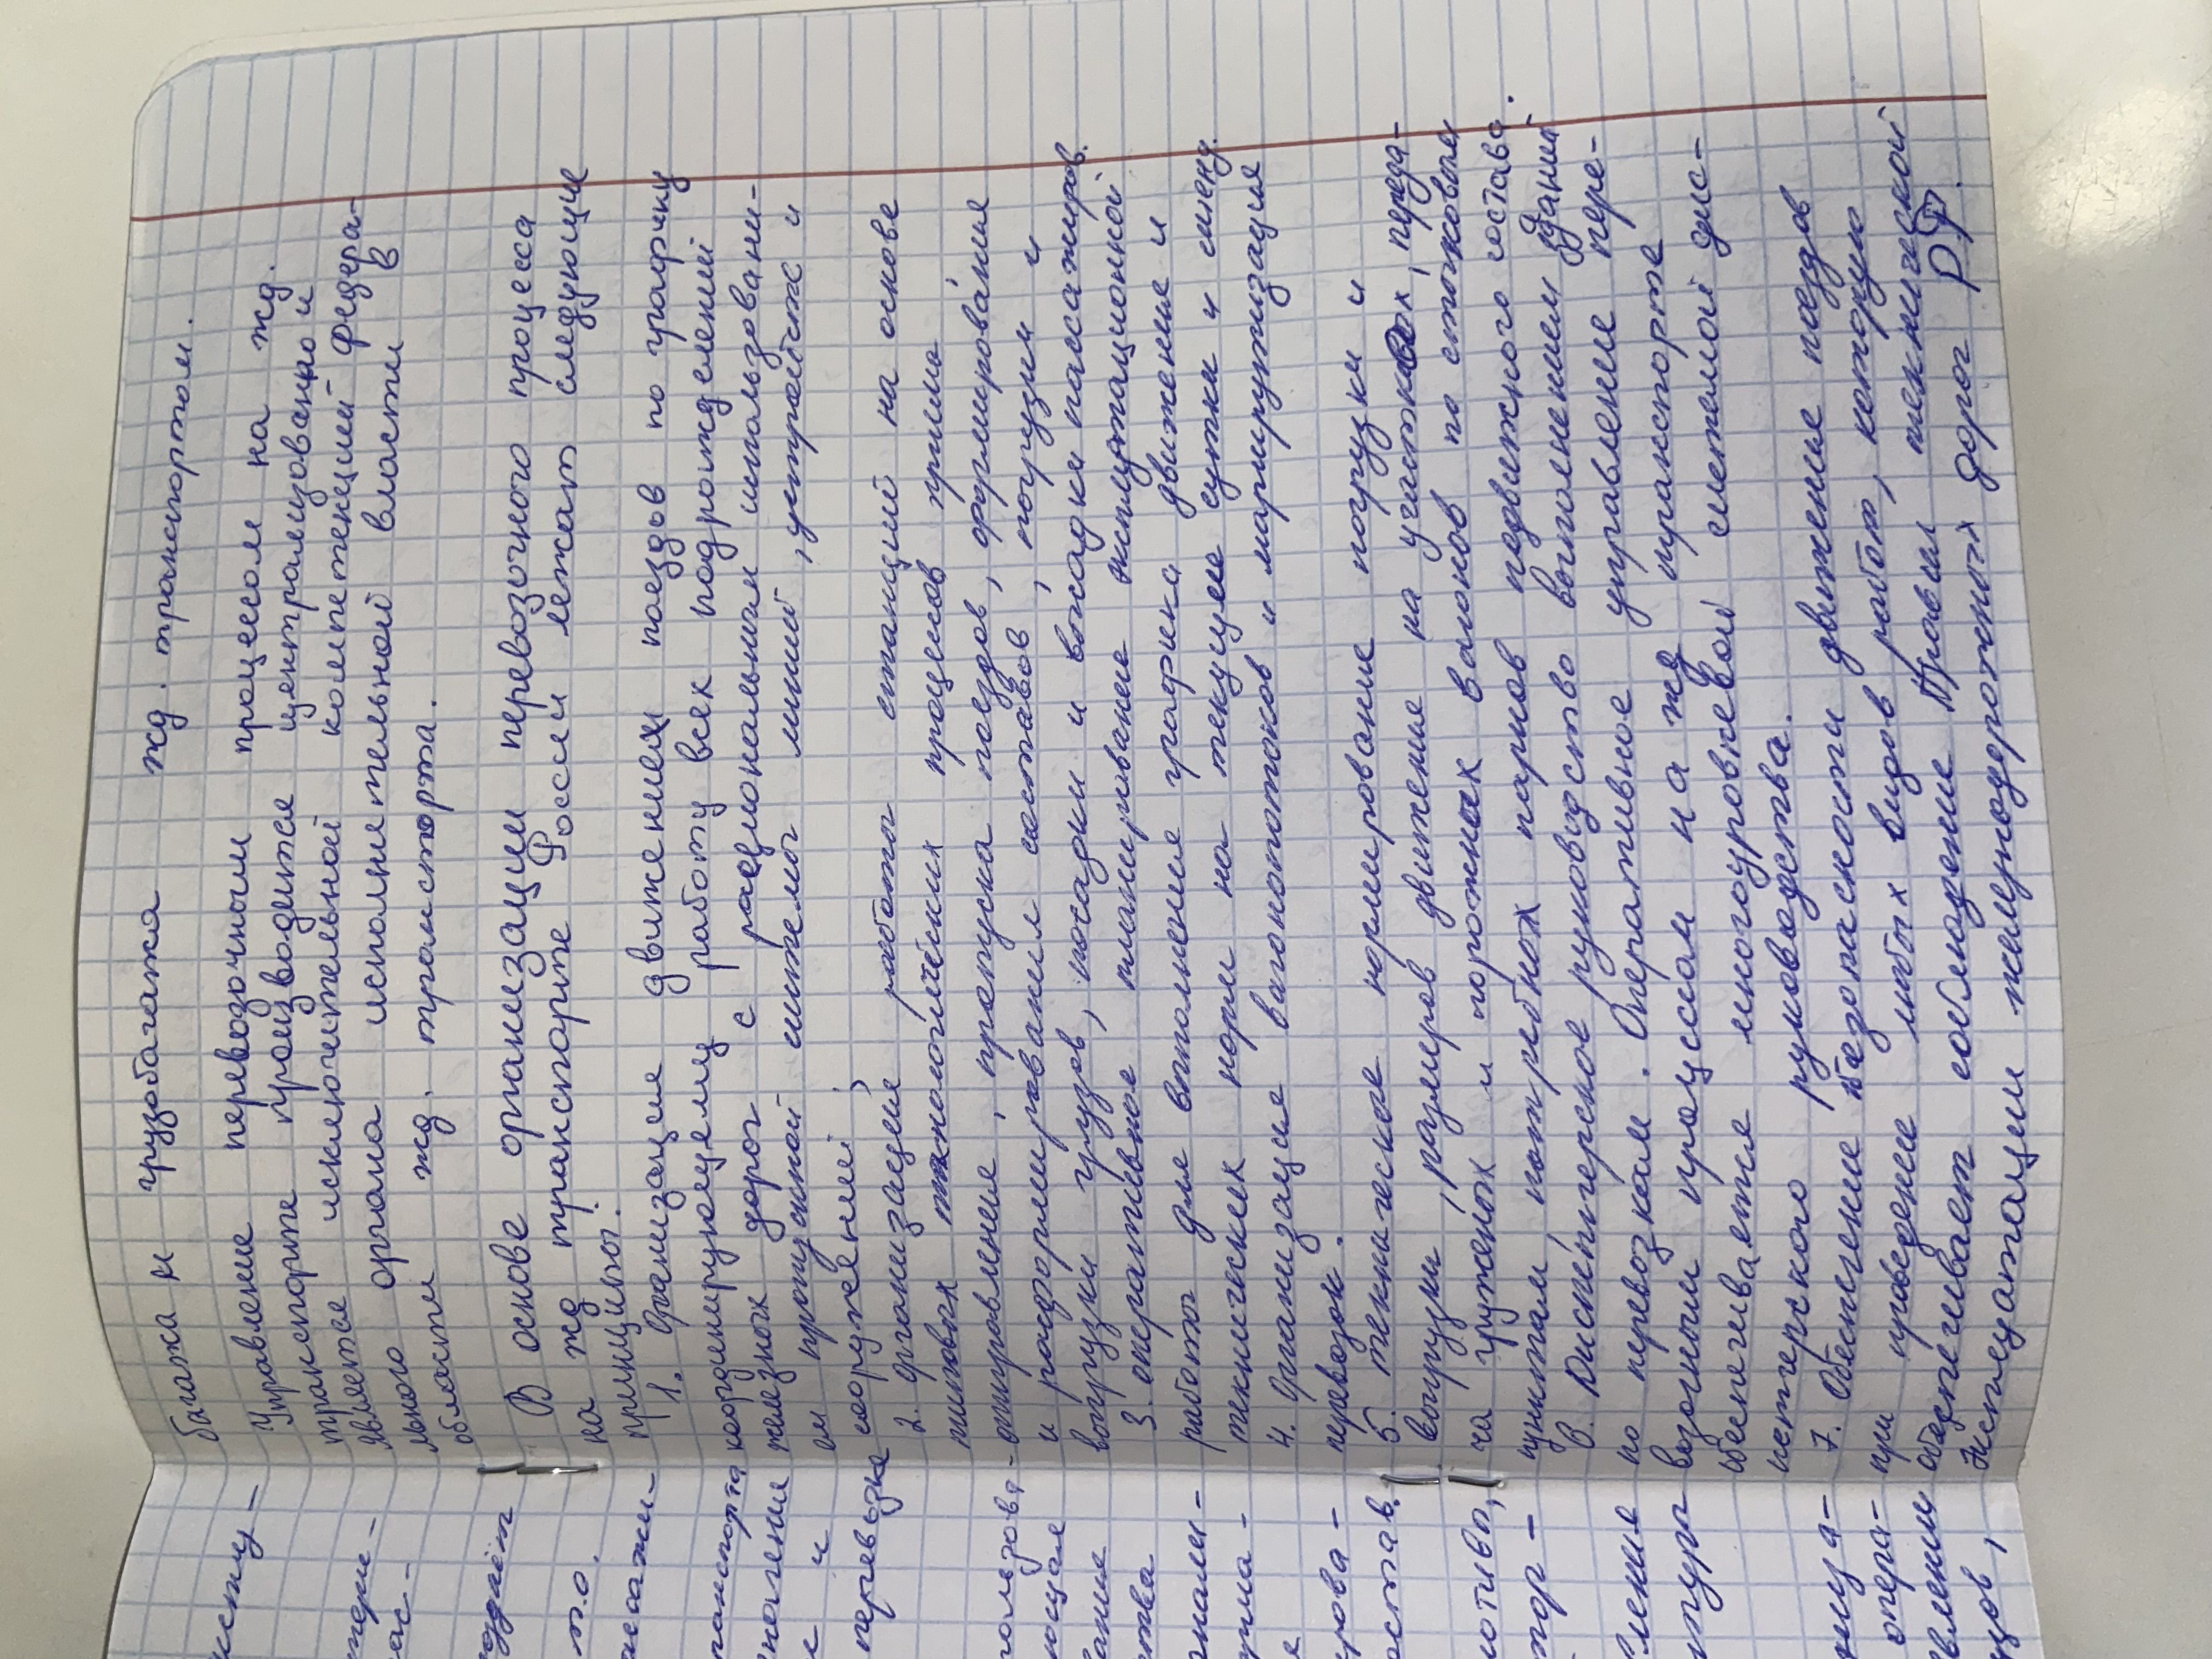 багажа и грузобагажа жд. транспортом.
Управление перевозочным процессом на жд.
транспорте производится централизованно и
является исключительной компетенцией федера-
льного органа исполнительной власти в
области жд. транспорта.
В основе организации перевозочного процесса
на жд транспорте России лежат следующие
принципы:
1. Организация движениея поездов по графику
координирующему работу всех подразделений
железных дорог с рациональным использовани-
ем пропускной систем линий, устройств и
сооружений;
2. Организация работы станций на основе
типовых технологических процессов приёма
отправления, пропуска поездов, формирование
и расформирования составов, погрузки и
выгрузки грузов, посадки и высадки пассажиров.
3. оперативное планирование эксплуатационной
работы для выполнения графика движения и
технических норм на текущие сутки и смену.
4. Организация вагонопотоков и маршрутизация
перевозок.
5. техническое нормирование погрузки и
выгрузки, размеров движения на участках, переда-
ча гружёных и порожных вагонов по стыковым
пунктам, потребных парков подвижного состава.
6. Диспетчерское руководство выполнением заданий
по перевозкам. Оперативное управление пере-
возочным процессом на жд транспорте
обеспечивается многоуровневой системой дис-
петчерского руководства.
7. Обеспечение безопасности движение поездов
при проведение любых видов работ, которую
обеспечивает соблюдение Правил технической
эксплуатации железнодорожных дорог РФ.
здаёт
т.о.
с и
перевозке